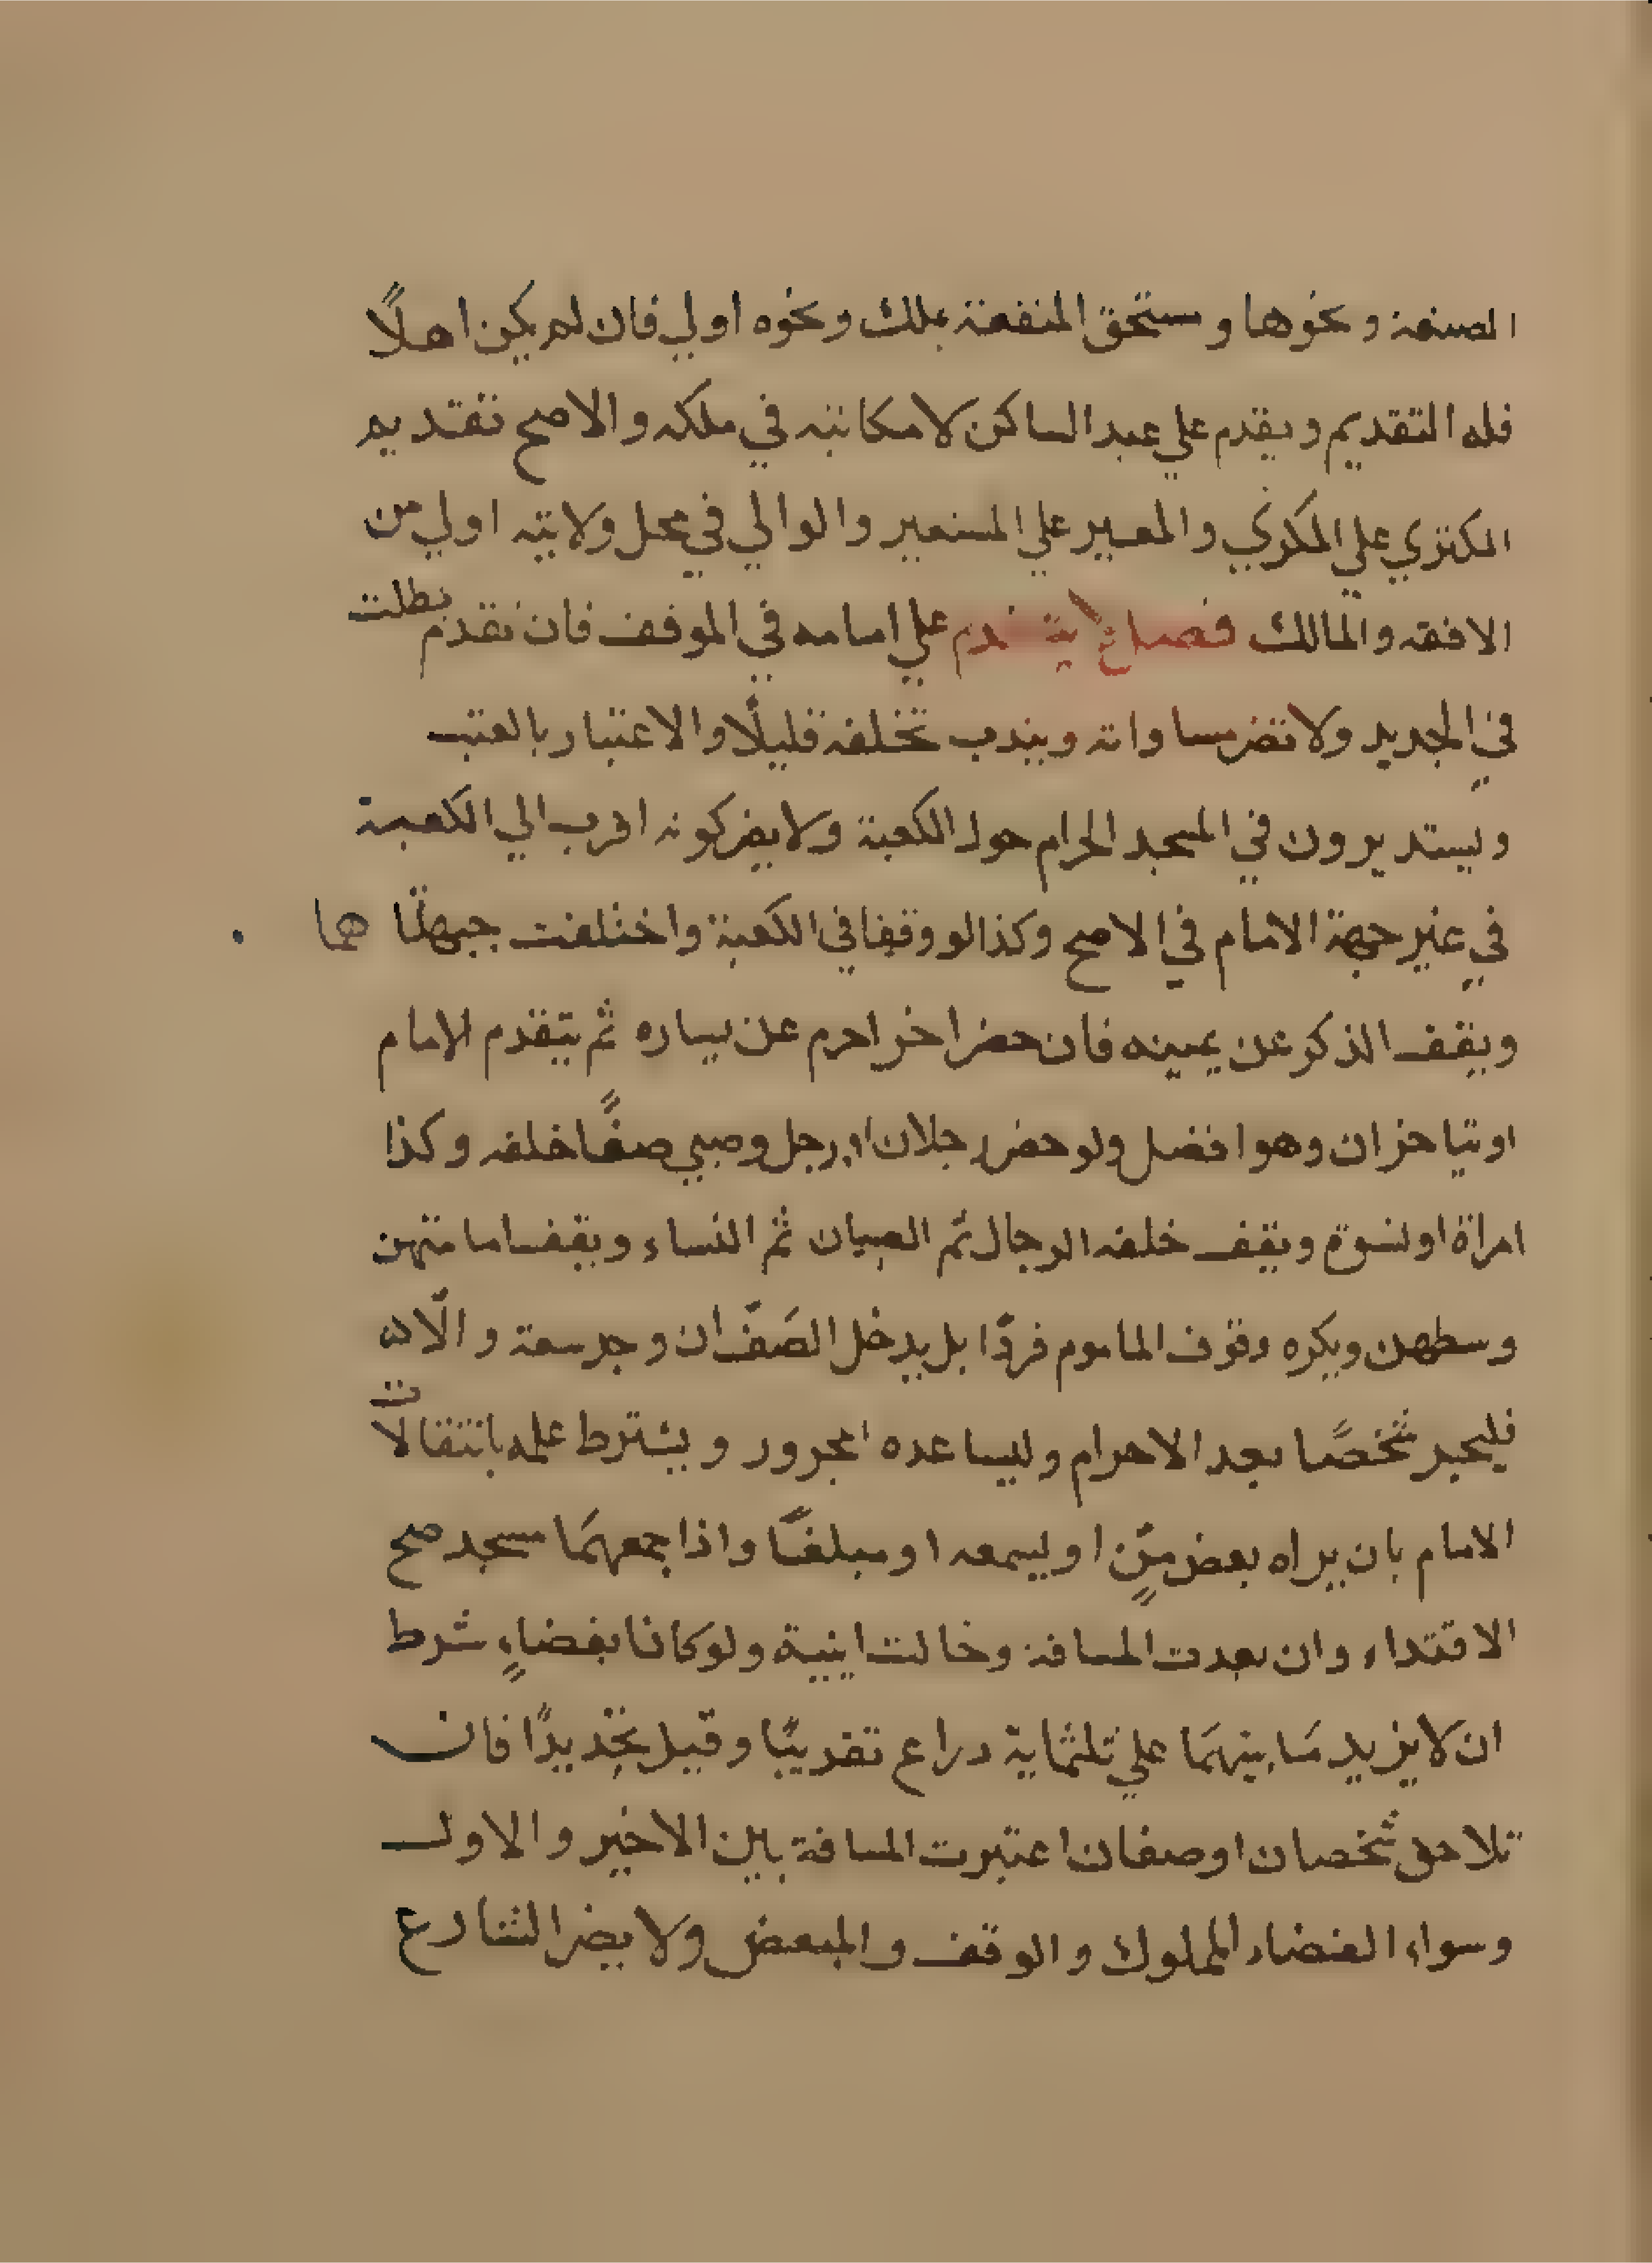 الصنعة ونحوها ومستحق المنفعة بملك ونحوه اولي فان لم يكن اهلًا
فله التقديم ويقدم علي عبد الساكن لا مكاتبه في ملكه والاصح تقديم
المكتري علي المكري والمعير علي المستعير والوالي في محل ولايته اولي من
الافقه والمالك فصل لا يتقدم علي امامه في الموقف فان تقدم بطلت
في الجديد ولا تضر مساواته ويندب تخلفه قليلًا والاعتبار بالعقب
ويستديرون في المسجد الحرام حول الكعبة ولا يضر كونه اقرب الي الكعبة
في غير جهة الامام في الاصح وكذا لو وقفا في الكعبة واختلفت جهتا هما
ويقف الذكر عن يمينه فان حضر اخر احرم عن يساره ثم يتقدم الامام
او يتاخران وهو افضل ولو حضر رجلان او رجل وصبي صفًا خلفه وكذا
امراة او نسوة ويقف خلفه الرجال ثم الصبيان ثم النساء ويقف امامتهن
وسطهن ويكره وقوف الماموم فردًا بل يدخل الصَفّ ان وجد سعة والّا
فليجر شخصًا بعد الاحرام وليساعده المجرور ويشترط علمه بانتقالات
الامام بان يراه بعض صفٍ او يسمعه او مبلغًا واذا جمعهمَا مسجد صح
الاقتداء وان بعدت المسافة وحالت ابنية ولو كانا بفضاءٍ شرط
ان لا يزيد مَا بينهمَا علي ثلثماية دراع تقريبًا وقيل تحديدًا فان
تلاحق شخصان او صفان اعتبرت المسافة بين الاخير والاول
وسواء الفضاء المملوك والوقف والمبعض ولا يضر الشارع